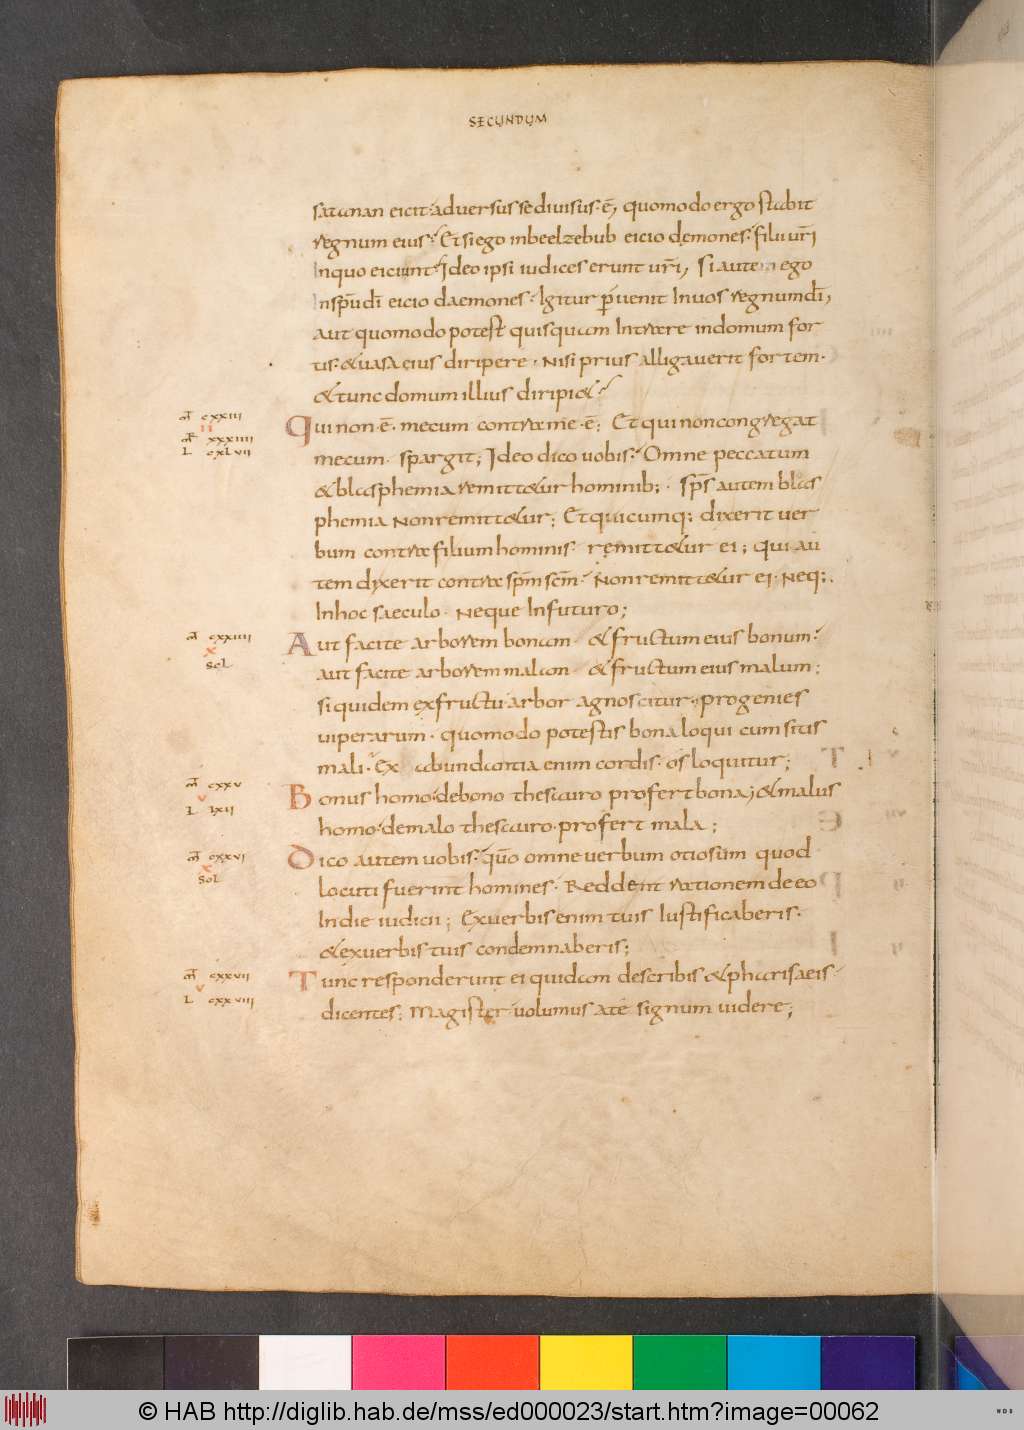 SECUNDUM
satanan eicit· adversus se divisus· ē, quomodo ergo stabit
regnum eius? Et si ego inbeelzebub eicio demones· filii ur̄i
Inquo eiciunt? Ideo ipsi iudices erunt ur̄i, Si autem ego
Inspū dī eicio daemones· Igitur p̄uenit Inuos regnum dī,
aut quomodo potest quisquam Intrare indomum for
tis· & uasa eius diripere· Nisi prius alligauerit fortem·
& tunc domum illius diripi&?
m̄ cxxiii
Qui non· ē· mecum contra me· ē; Et qui non congregat
m̄r xxxiiii
L cxLvii
mecum· spargit; Ideo dico uobis· Omne peccatum
& blasphemia remitt&ur hominib;· sps̄ autem blas
phemia Non remitt&ur; Et quicumq; dixerit uer
bum contra filium hominis· remitt&ur ei; Qui au
tem dixerit contra spm̄ scm̄· Non remitt&ur ei· Neq;
Inhoc saeculo· Neque Infuturo;
m̄ cxxiiii
Aut facite arborem bonam· & fructum eius bonum·
Sol
aut facite arborem malam· & fructum eius malum;
si quidem exfructu arbor agnoscitur; progenies
uiperarum· quomodo potestis bona loqui cum sitis
mali· Ex abundantia enim cordis· os loquitur;
m̄ cxxv
Bonus homo· debono thesauro profert bona; & malus
L Lxii
homo· demalo thesauro· profert mala;
m̄ cxxvi
Dico autem uobis· qūo omne uerbum otiosum quod
Sol
locuti fuerint homines· Reddent rationem de eo
Indie iudicii; Exuerbis enim tuis Iustificaberis·
& exuerbis tuis condemnaberis;
m̄ cxxvii
Tunc responderunt ei quidam describis & pharisaeis·
L cxxviii
dicentes; Magister uolumus ate signum uidere;
© HAB http://diglib.hab.de/mss/ed000023/start.htm?image=00062